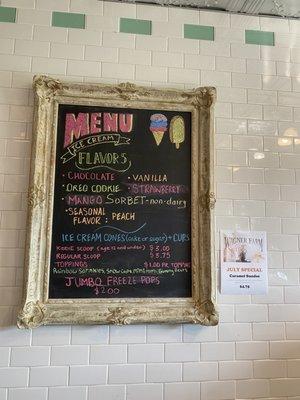 MENU
ICE CREAM
FLAVORS
• CHOCOLATE • VANILLA
• OREO COOKIE • STRAWBERRY
• MANGO SORBET - non-dairy
• SEASONAL
FLAVOR : PEACH
ICE CREAM CONES (cake or sugar) + CUPS
KIDDIE SCOOP (age 12 and under) $3.00
REGULAR SCOOP $5.75
TOPPINGS $1.00 PR. TOPPING
Rainbow Sprinkles,
JUMBO FREEZE POPS
$2.00
TURNER FARM
JULY SPECIAL
Caramel Sundae
$6.75